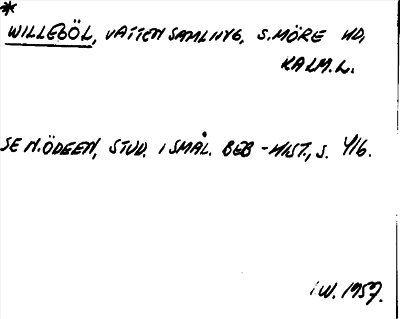 *
WILLEBÖL, VATTENSAMLING, S. MÖRE HD,
KALM. L.
SE N. ÖDEEN, STUD. I SMÅL. BEB-HIST., S. 416.
I W. 1957.